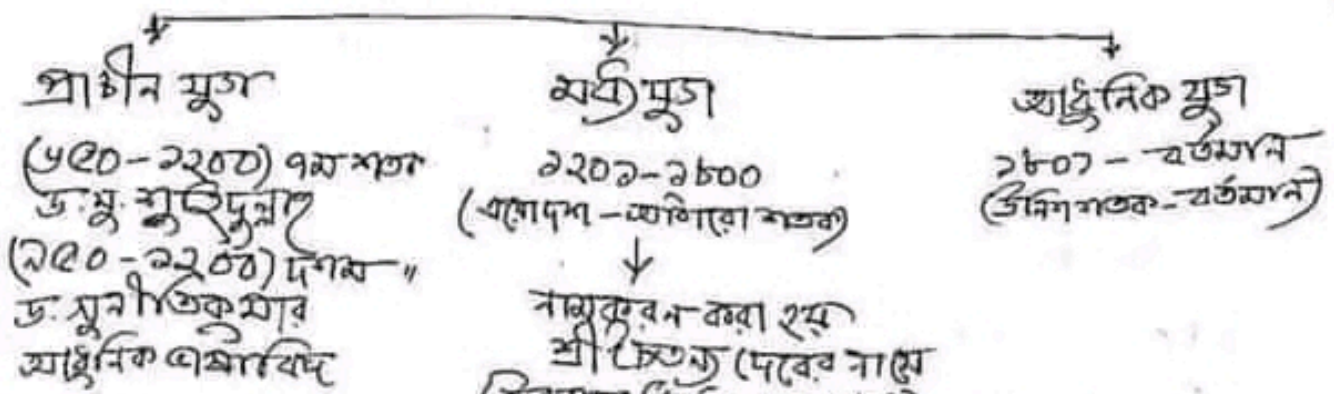 প্রাচীন যুগ
(৬৫০-১২০০) ৭ম শতক
ড. মু. শহিদুল্লাহ
(৯৫০-১২০০) দশম "
ড. সুনীতিকুমার
আধুনিক ভাষাবিদ
মধ্যযুগ
১২০১-১৮০০
(ত্রয়োদশ - আঠারো শতক)
নামকরন করা হয়
শ্রী চৈতন্য দেবের নামে
আধুনিক যুগ
১৮০১ - বর্তমান
(উনিশ শতক - বর্তমান)